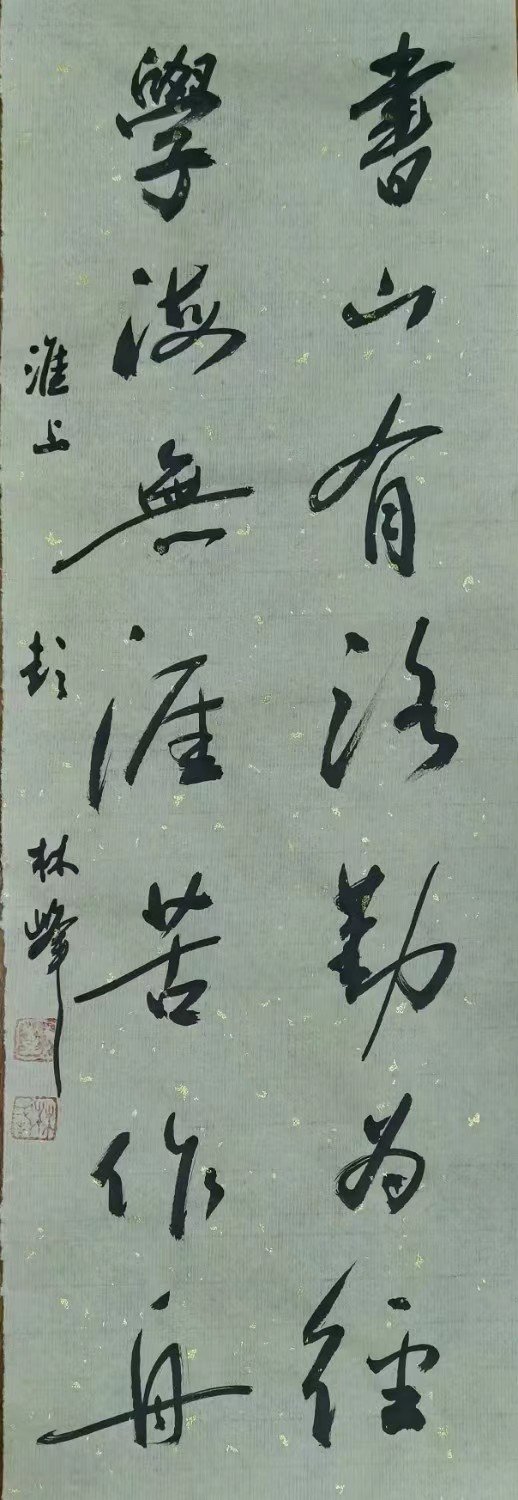 書山有路勤为径
學海無涯苦作舟
淮上 彭 林峰